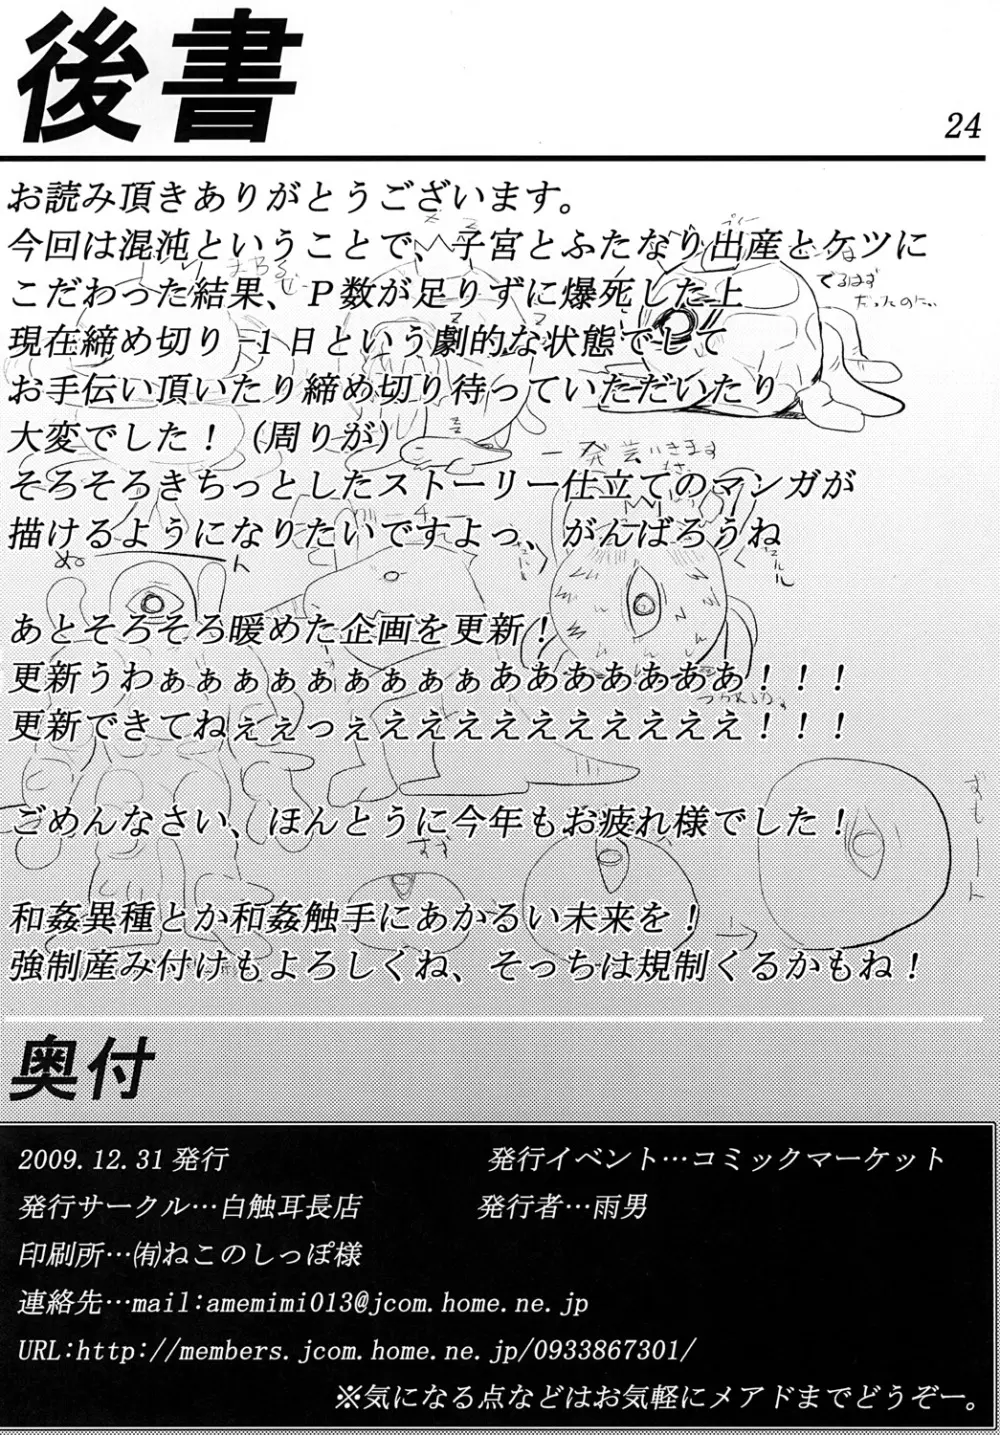 後書
24
お読み頂きありがとうございます。
今回は混沌ということで、子宮とふたなり出産とケツに
こだわった結果、P数が足りずに爆死した上
現在締め切り-1日という劇的な状態でして
お手伝い頂いたり締め切り待っていただいたり
大変でした！（周りが）
そろそろきちっとしたストーリー仕立てのマンガが
描けるようになりたいですよっ、がんばろうね
あとそろそろ暖めた企画を更新！
更新うわぁぁぁぁぁぁぁぁぁあああああああ！！！
更新できてねぇぇっぇええええええええええ！！！
ごめんなさい、ほんとうに今年もお疲れ様でした！
和姦異種とか和姦触手にあかるい未来を！
強制産み付けもよろしくね、そっちは規制くるかもね！
でるはず
だったのにい
一発芸いきます
ぬーん
奥付
2009.12.31発行
発行イベント…コミックマーケット
発行サークル…白触耳長店
発行者…雨男
印刷所…㈲ねこのしっぽ様
連絡先…mail:amemimi013@jcom.home.ne.jp
URL:http://members.jcom.home.ne.jp/0933867301/
※気になる点などはお気軽にメアドまでどうぞー。